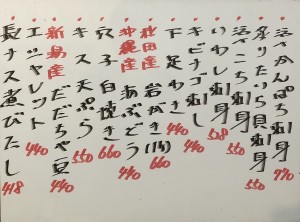 活かんぱち刺身 770
炙りたいら貝刺身 550
活〆こち刺身 550
いわし刺身 528
キビナゴ刺 440
下足わさ 440
秋田産 岩がき 660
沖縄産 海ぶどう 440
穴子白焼き 660
キス天ぷら 550
新潟産 だだちゃ豆 440
エシャレット 440
長ナス煮びたし 418